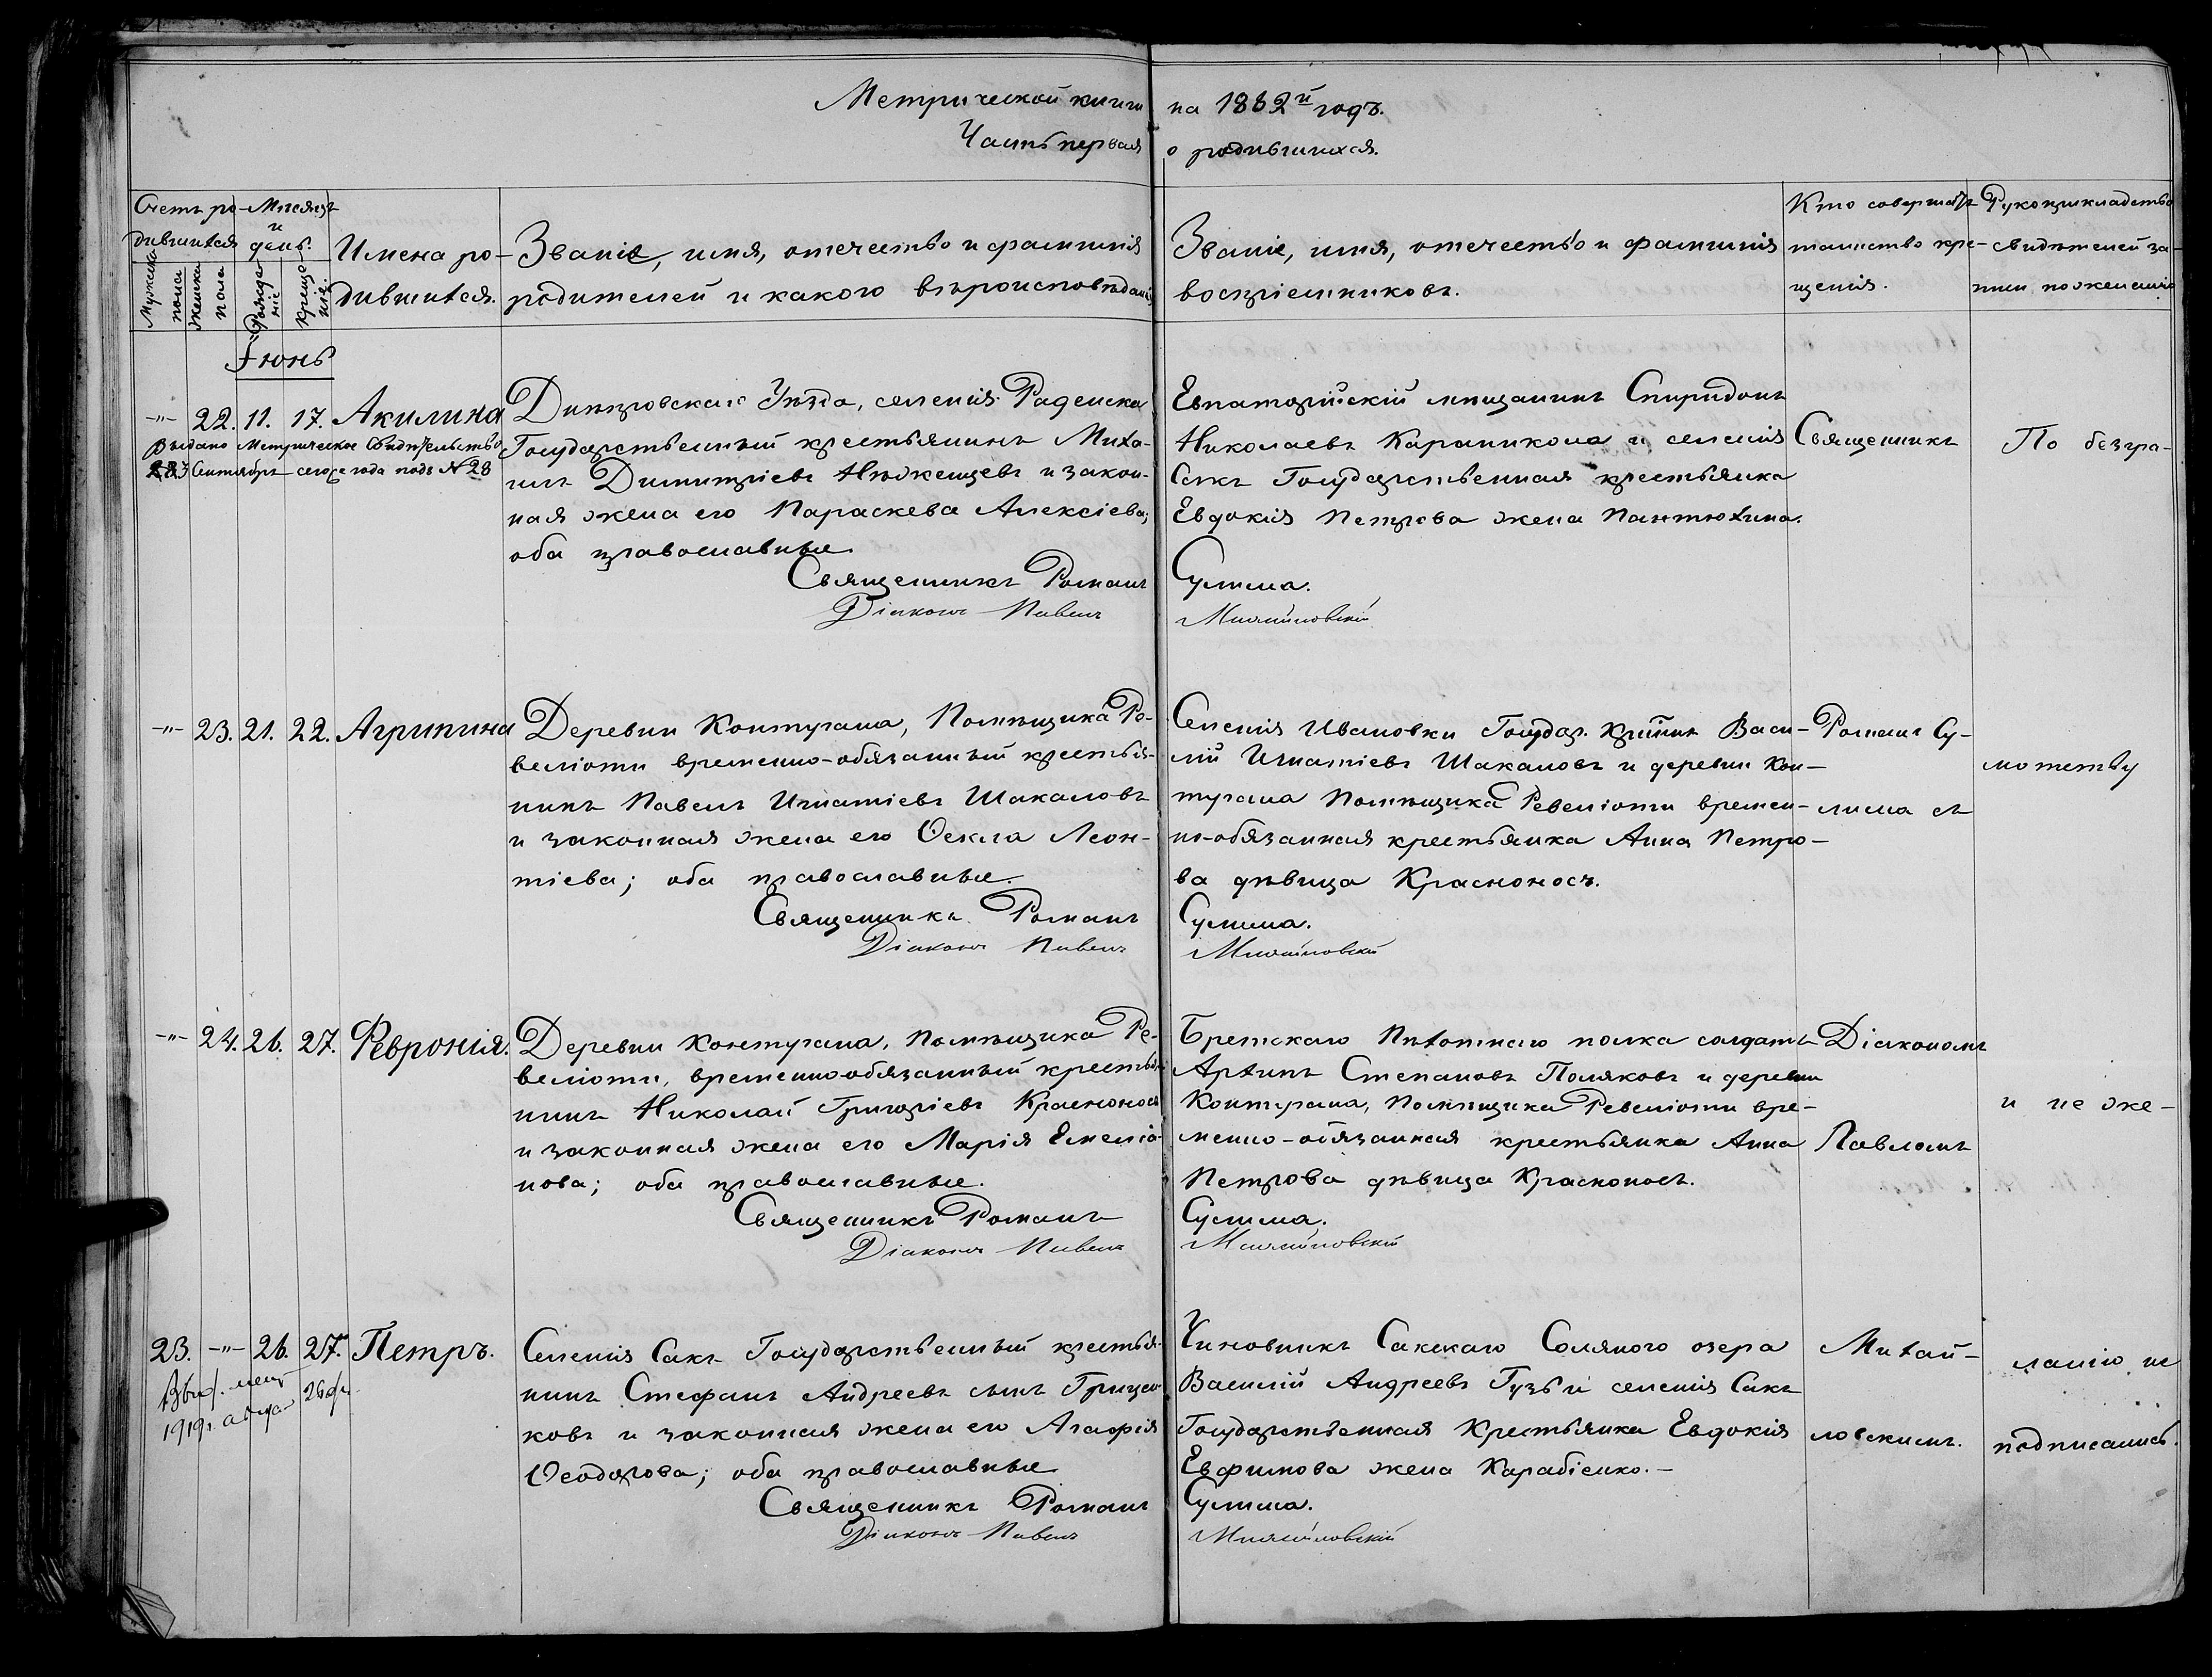 Метрической книги на 1882й годъ.
Часть первая о родившихся.
Счетъ ро-
дившихся
Мужска
пола
Женска
пола
Мѣсяцъ
и
день.
Рожде
ніе
Креще
ніе.
Имена ро-
дившихся.
Званіе, имя, отечество и фамилія
родителей и какого вѣроисповѣданія
Званіе, имя, отечество и фамилія
воспріемниковъ.
Кто совершалъ
таинство кре-
щенія.
Рукоприкладство
свидѣтелей за-
писи по желанію
Іюнь
-"- 22. 11. 17. Акилина
Выдано Метрическое Свидѣтельство
23 Сентября сего года подъ № 28
Днѣпровскаго Уѣзда, селенія Раденска
Государственный крестьянинъ Миха-
илъ Димитріевъ Нѣженцевъ и закон-
ная жена его Параскева Алексіева;
оба православные.
Священникъ Романъ
Діаконъ Павелъ
Евпаторійскій мѣщанинъ Спиридонъ
Николаевъ Караникола и селенія
Сакъ Государственная крестьянка
Евдокія Петрова жена Пантюхина.
Сулима.
Михайловскій
-"- 23. 21. 22. Агрипина
Деревни Контугана, Помѣщика Ре-
веліоти временно-обязанный крестья-
нинъ Павелъ Игнатіевъ Шакаловъ
и законная жена его Ѳекла Леон-
тіева; оба православные.
Священникъ Романъ
Діаконъ Павелъ
Селенія Ивановки Государ. Кртнин Васи-
лій Игнатіевъ Шакаловъ и деревни Кон-
тугана Помѣщика Ревеліоти времен-
но-обязанная крестьянка Анна Петро-
ва дѣвица Красноносъ.
Сулима.
Михайловскій
-"- 24. 26. 27. Февронія.
Деревни Контугана, Помѣщика Ре-
веліоти, временно-обязанный крестья-
нинъ Николай Григоріевъ Красноносъ
и законная жена его Марія Емеліа-
нова; оба православные.
Священникъ Романъ
Діаконъ Павелъ
Брестскаго Пѣхотнаго полка солдатъ
Архипъ Степановъ Поляковъ и деревни
Контугана, Помѣщика Ревеліоти вре-
менно-обязанная крестьянка Анна
Петрова дѣвица Красноносъ.
Сулима.
Михайловскій
23. -"- 26. 27. Петръ.
1919г.
Селенія Сакъ Государственный крестья-
нинъ Стефанъ Андреевъ сынъ Грицен-
ковъ и законная жена его Агафія
Ѳеодорова; оба православные
Священникъ Романъ
Діаконъ Павелъ
Чиновникъ Сакскаго Солянаго озера
Василій Андреевъ Гузь и селенія Сакъ
Государственная Крестьянка Евдокія
Евфимова жена Карабіенко.-
Сулима.
Михайловскій
Священникъ
Романъ Су-
лима съ
Діакономъ
Павломъ
Михай-
ловскимъ.
По безгра-
мотству
и не же-
ланію не
подписались.